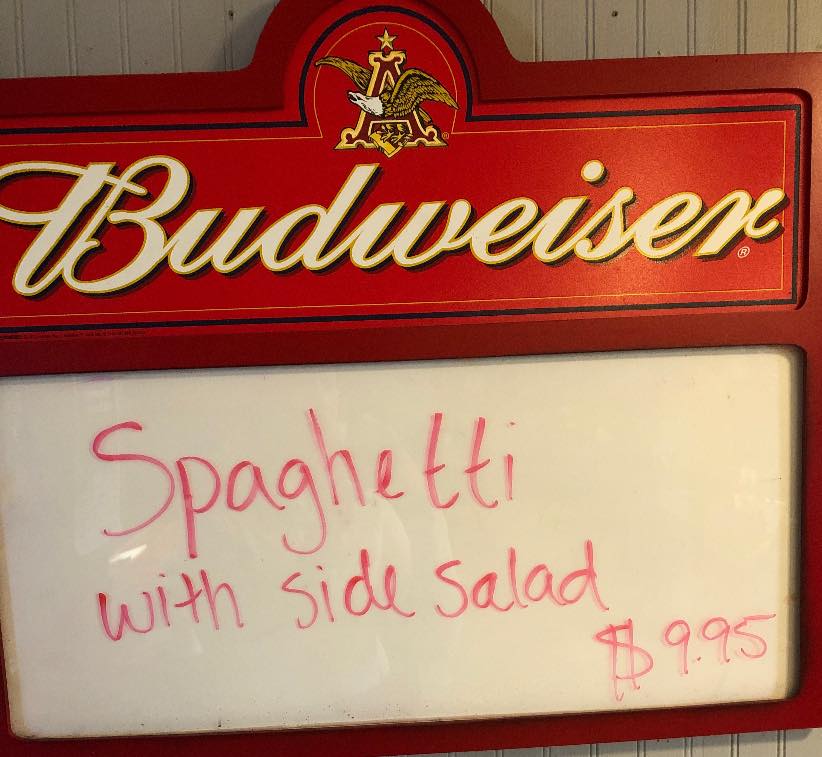 Budweiser
Spaghetti
with side salad
$9.95